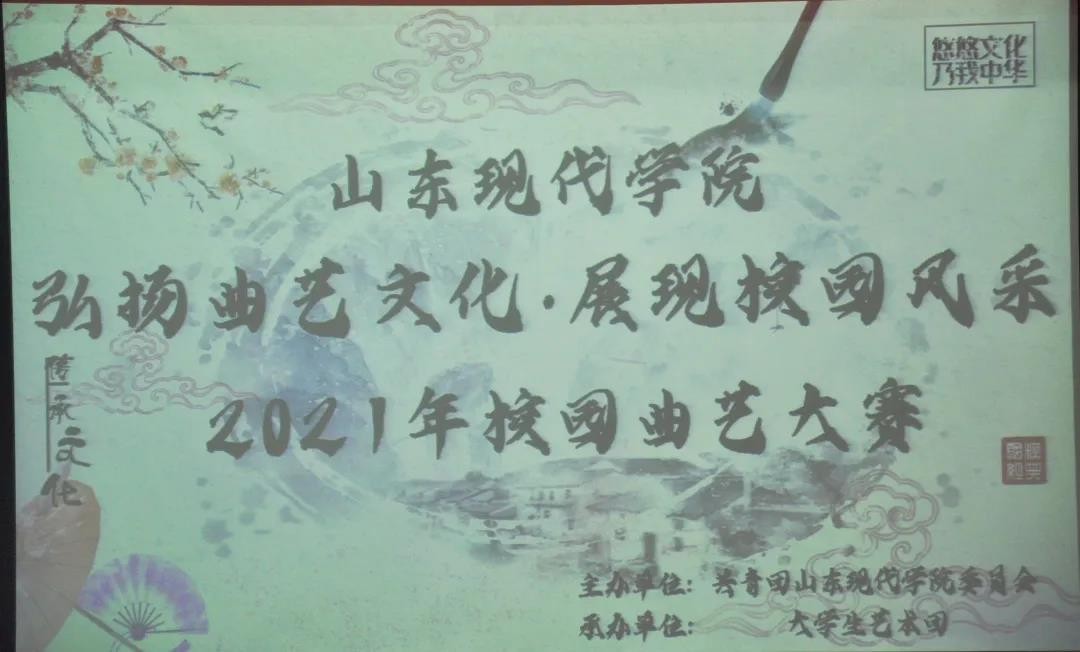 悠悠文化
乃我中华
山东现代学院
弘扬曲艺文化·展现校园风采
2021年校园曲艺大赛
传承文化
主办单位：共青团山东现代学院委员会
承办单位：大学生艺术团